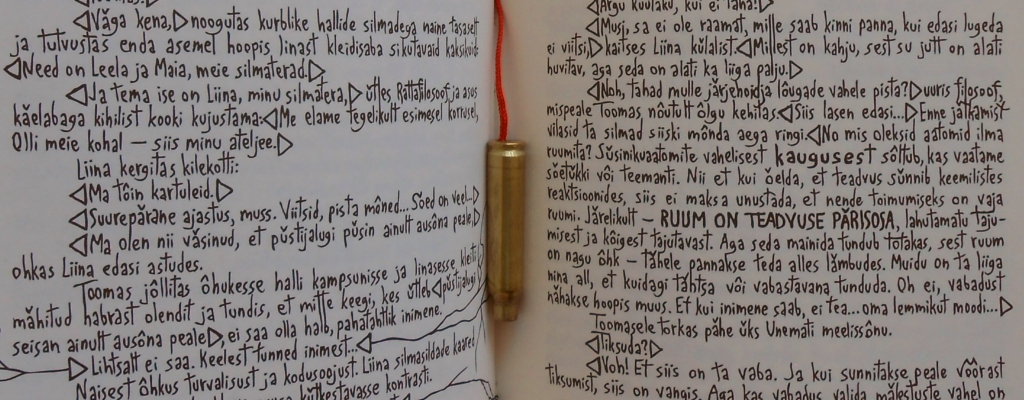 ◁Väga kena,▷ noogutas kurblike hallide silmadega naine tasaselt
ja tutvustas enda asemel hoopis linast kleidisaba sikutavaid kaksikuid:
◁Need on Leela ja Maia, meie silmaterad.▷
◁Ja tema ise on Liina, minu silmatera,▷ ütles Rättafilosoof ja asus
käelabaga kihilist kooki kujustama:◁Me elame tegelikult esimesel korrusel,
Olli meie kohal – siis minu ateljee.▷
Liina kergitas kilekotti:
◁Ma tõin kartuleid.▷
◁Suurepärane ajastus, muss. Viitsid, pista mõned... Sõed on veel...▷
◁Ma olen nii väsinud, et püstijalugi püsin ainult ausõna peale,▷
ohkas Liina edasi astudes.
Toomas jõllitas õhukesse halli kampsunisse ja linasesse kleiti
mähitud habrast olendit ja tundis, et mitte keegi, kes ütleb◁püstijalugi
seisan ainult ausõna peale▷, ei saa olla halb, pahatahtlik inimene.
▷Lihtsalt ei saa. Keelest tunned inimest..◁
Naisest õhkus turvalisust ja kodusoojust. Liina silmasildade kaared
kontrasti.
◁Argu kuulaku, kui ei taha!▷
◁Musi, sa ei ole raamat, mille saab kinni panna, kui edasi lugeda
ei viitsi,▷kaitses Liina külalist.◁Millest on kahju, sest su jutt on alati
huvitav, aga seda on alati ka liiga palju.▷
◁Noh, tahad mulle järjehoidja lõugade vahele pista?▷uuris filosoof,
mispeale Toomas nõutult õlgu kehitas.◁Siis lasen edasi...▷Enne jätkamist
vilasid ta silmad siiski mõnda aega ringi.◁No mis oleksid aatomid ilma
ruumita? Süsinikuaatomite vahelisest kaugusest sõltub, kas vaatame
söetükki või teemanti. Nii et kui öelda, et teadvus sünnib keemilistes
reaktsioonides, siis ei maksa unustada, et nende toimumiseks on vaja
ruumi. Järelikult – RUUM ON TEADVUSE PÄRISOSA, lahutamatu taju-
misest ja kõigest tajutavast. Aga seda mainida tundub totakas, sest ruum
on nagu õhk – tähele pannakse teda alles lämbudes. Muidu on ta liiga
nina all, et kuidagi tähtsa või vabastavana tunduda. Oh ei, vabadust
nähakse hoopis muus. Et kui inimene saab, ei tea...oma lemmikut moodi...▷
Toomasele torkas pähe üks Unemati meelissõnu.
◁Tiksuda?▷
◁Noh! Et siis on ta vaba. Ja kui sunnitakse peale võõrast
tiksumist, siis on vangis. Aga kas vabadus valida mälestuste vahel on